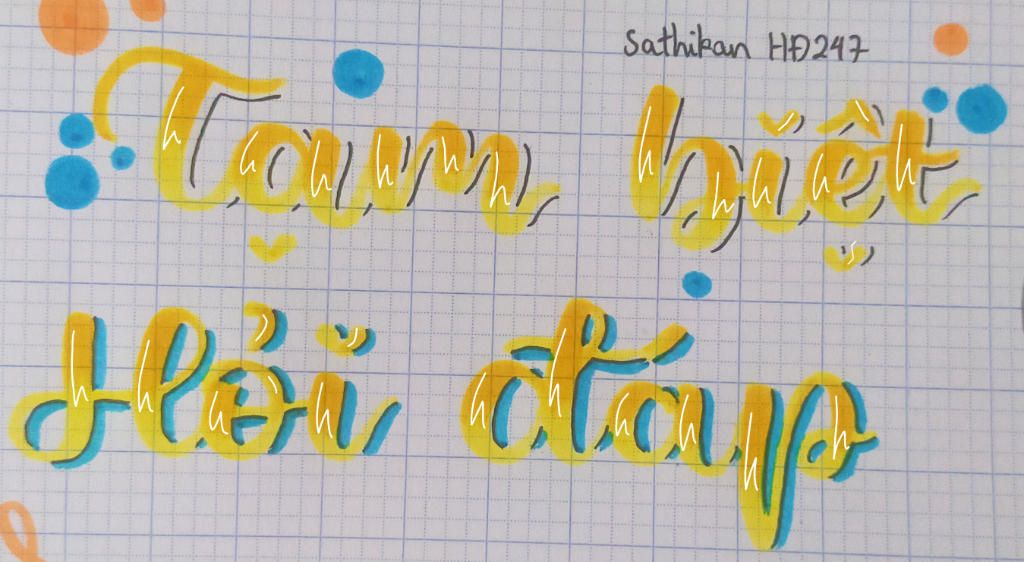 Sathikan HĐ247
Tạm biệt
Hỏi đáp